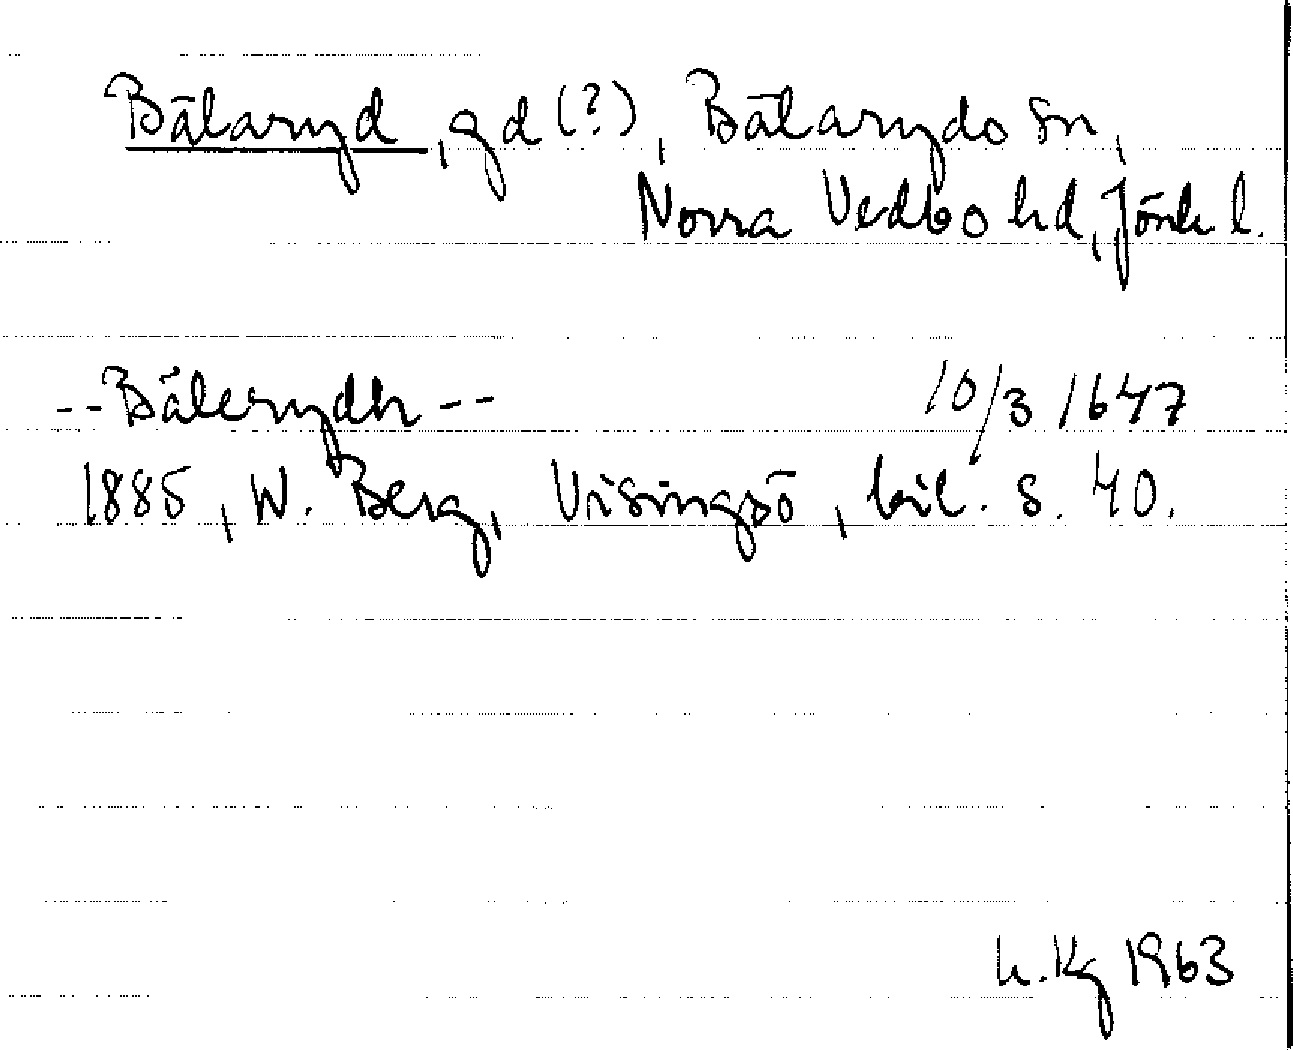 Bälaryd, gd (?), Bälaryds sn,
Norra Vedbo hd, Jönk l.
-- Bälerydh -- 10/3 1647
1885, W. Berg, Visingsö, bil. s. 40.
h. Kg 1963